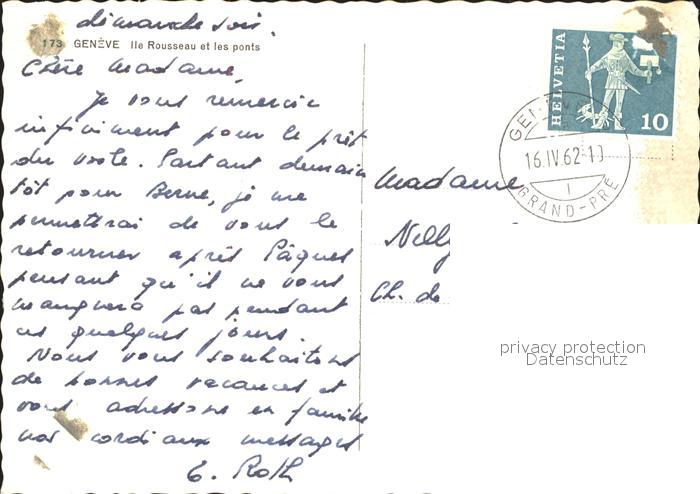 dimanche soir.
173 GENÈVE Ile Rousseau et les ponts
Chère Madame,
Je vous remercie
infiniment pour le prêt
du voile. Partant demain
tôt pour Berne, je me
permettrai de vous le
retourner après Pâques
pensant qu'il ne vous
manquera pas pendant
ces quelques jours.
Nous vous souhaitons
de bonnes vacances et
vous adressons en famille
nos cordiaux messages
Roth
HELVETIA
10
16.IV.62-1
GRAND-PRÉ
Madame
Nelly
Ch. de
privacy protection
Datenschutz